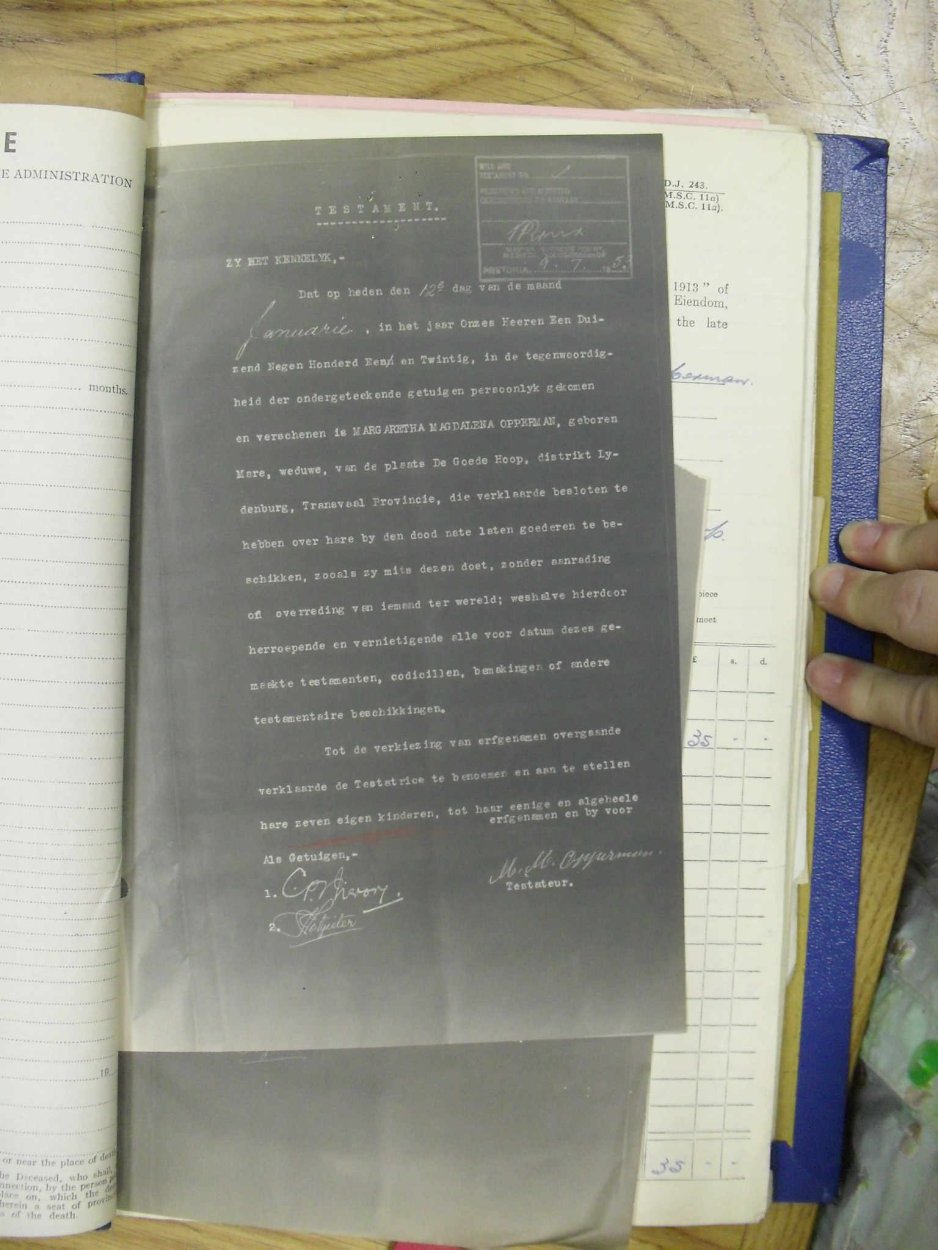 E
E ADMINISTRATION
months.
19
or near the place of death
he Deceased, who shall,
nnection, by the person
place on, which the
herein a seat of
s of the death.
TESTAMENT.
WILL AND
TESTAMENT No.
PRETORIA, 9.7.1953
ZY HET KENNELYK,-
Dat op heden den 12e dag van de maand
Januarie, in het jaar Onzes Heeren Een Dui-
zend Negen Honderd Een en Twintig, in de tegenwoordig-
heid der ondergeteekende getuigen persoonlyk gekomen
en verschenen is MARGARETHA MAGDALENA OPPERMAN, geboren
Mare, weduwe, van de plaats De Goede Hoop, distrikt Ly-
denburg, Transvaal Provincie, die verklaarde besloten te
hebben over hare by den dood nate laten goederen te be-
schikken, zooals zy mits dezen doet, zonder aanrading
of overreding van iemand ter wereld; weshalve hierdoor
herroepende en vernietigende alle voor datum dezes ge-
maakte testamenten, codicillen, bemakingen of andere
testamentaire beschikkingen.
Tot de verkiezing van erfgenamen overgaande
verklaarde de Testatrice te benoemen en aan te stellen
hare zeven eigen kinderen, tot haar eenige en algeheele
erfgenamen en by voor
Als Getuigen,-
M. M. Opperman.
Testateur.
1.
2.
D.J. 243.
M.S.C. 11a)
M.S.C. 11a).
1913" of
Eiendom,
the late
piece
moet
£ s. d.
35 - -
35 - -